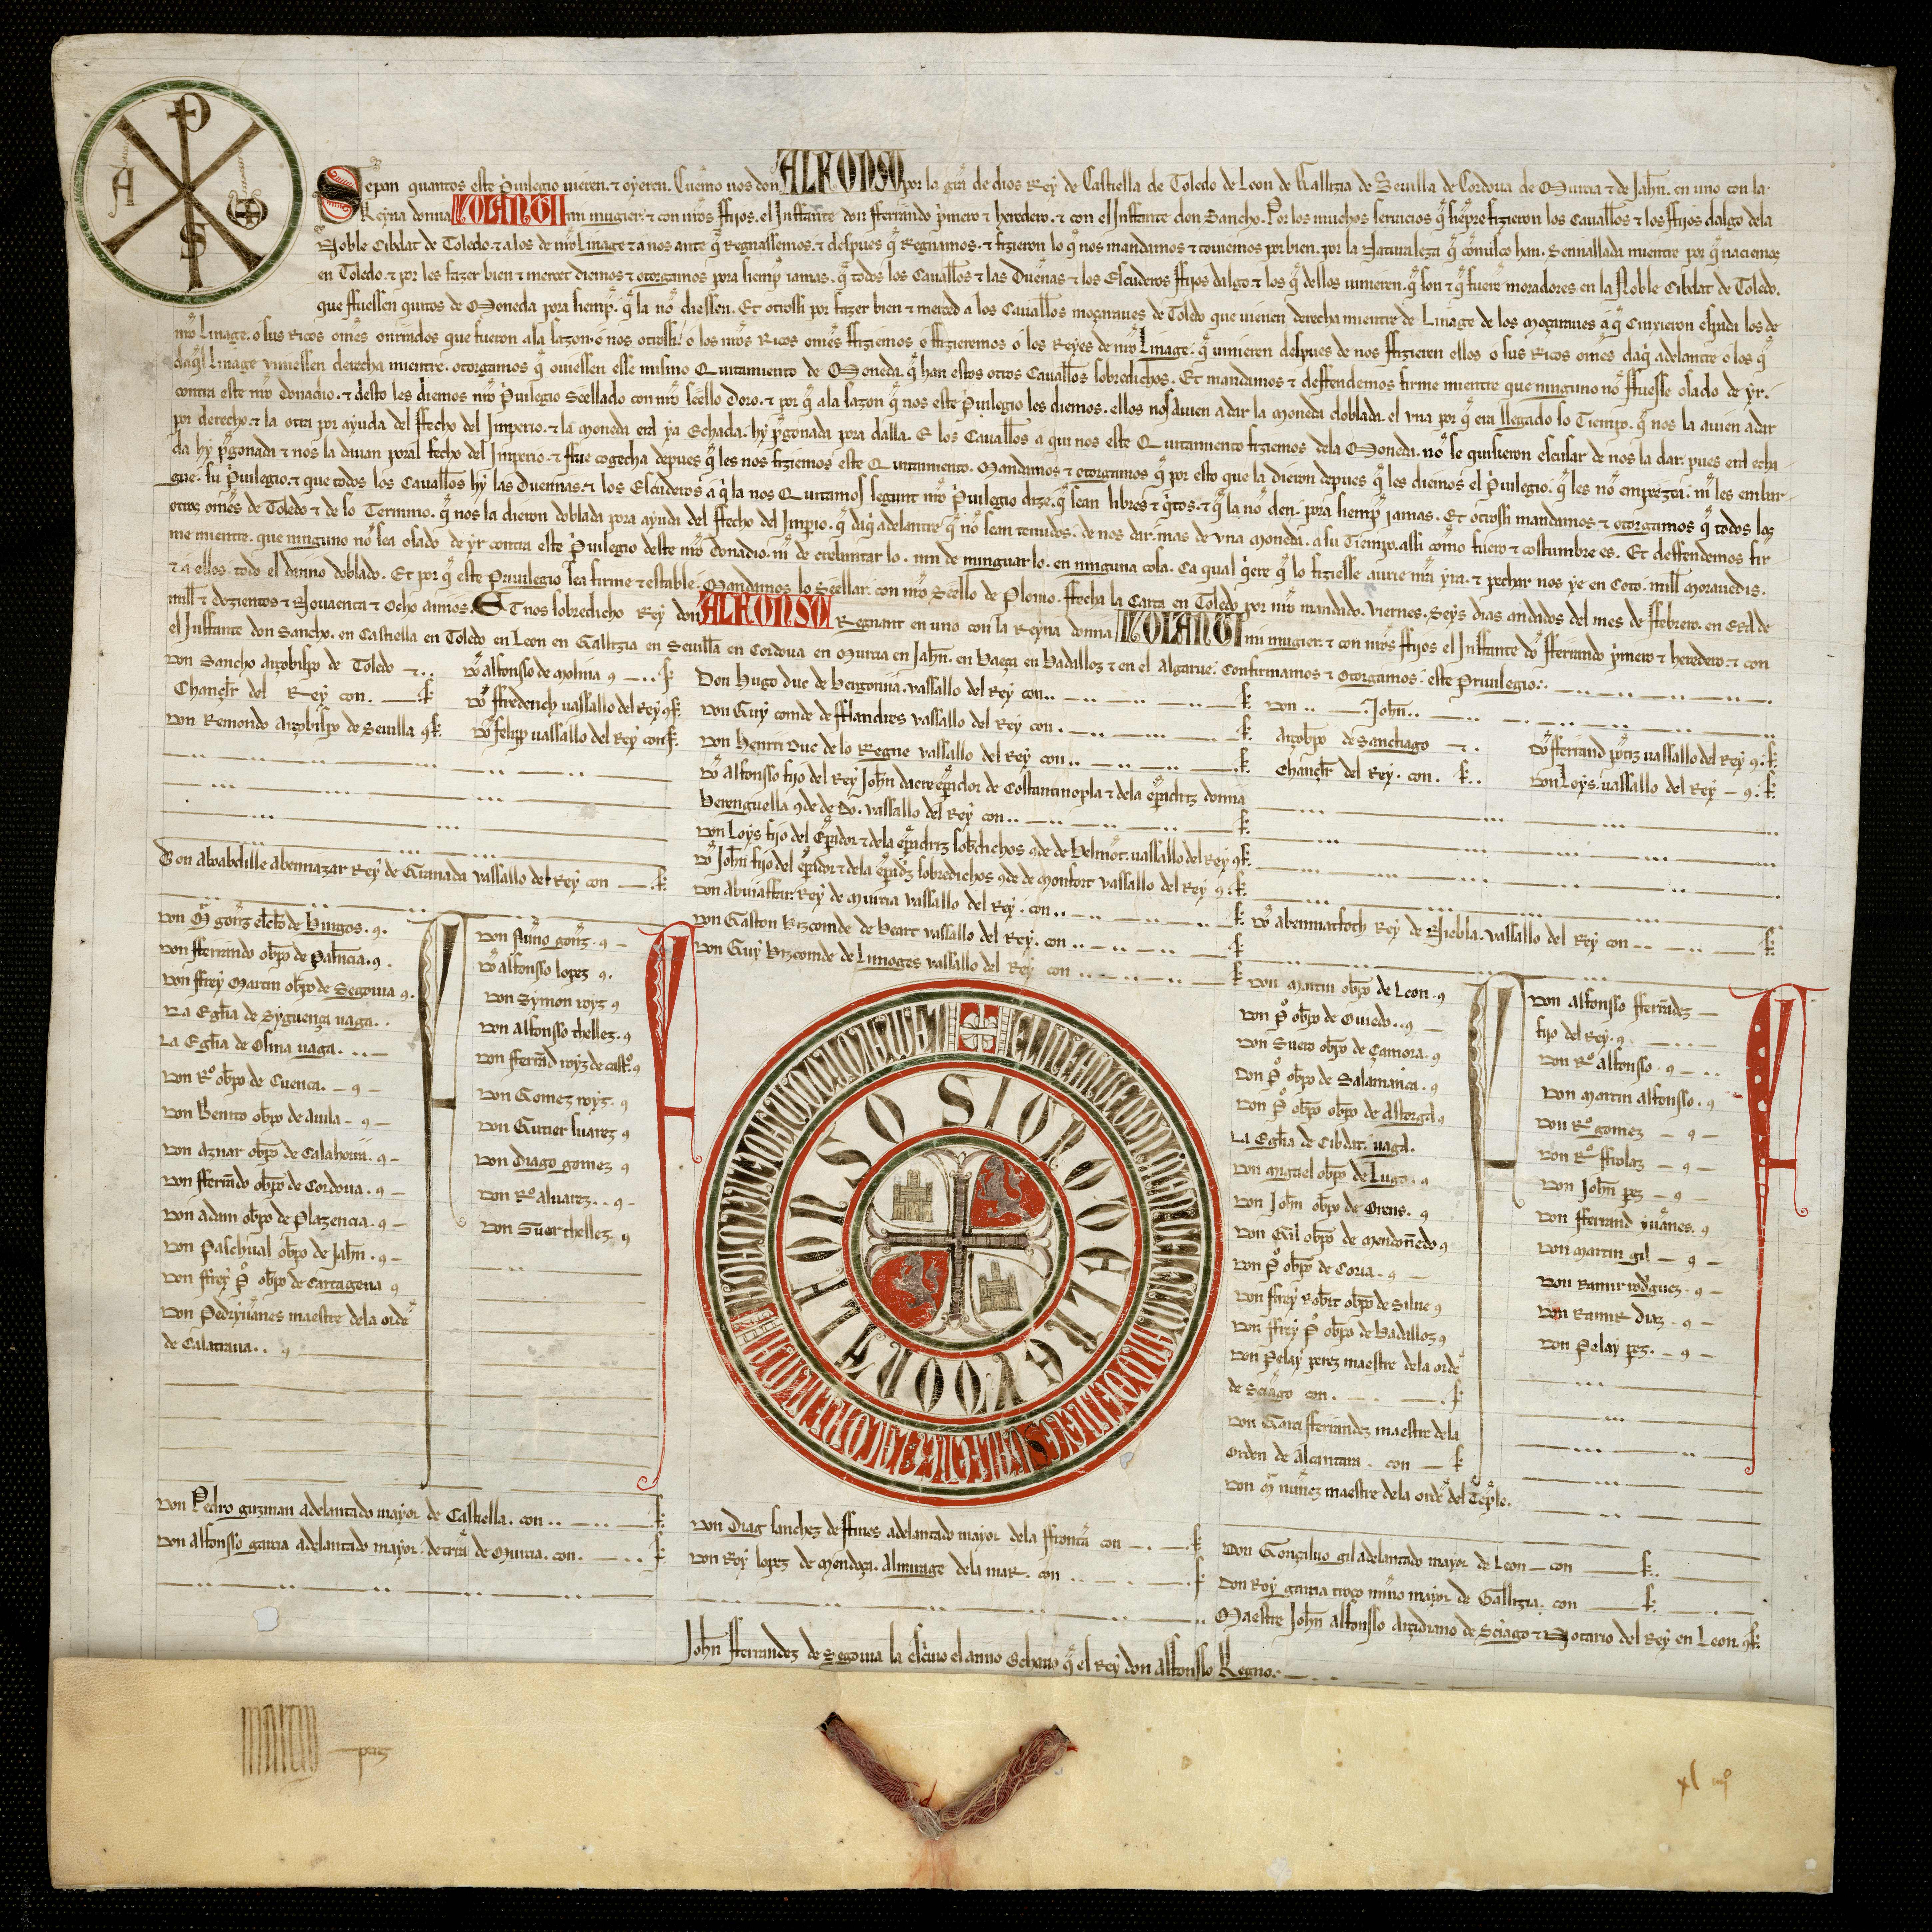 Sepan quantos este pͥuilegio uieren ⁊ oyeren. Cuemo nos don ALFONSO por la grã de dios Rey de Castiella de Toledo de Leon de Gallizia de Seuilla de Cordoua de Murcia ⁊ de Jahñ. en uno con la
Reyna donna YOLANT mi mugier. ⁊ con nr̃os ffijos. el Inffante don fferrando p̃mero ⁊ heredero. ⁊ con el Inffante don Sancho. Por los muchos seruicios q̃ siẽpre fizieron los Cauall̃os ⁊ los ffijos dalgo dela
Noble Cibdat de Toledo. ⁊ a los de nr̃o Linage ⁊ a nos ante q̃ Regnassemos. ⁊ despues q̃ Regnamos. ⁊ fizieron lo q̃ nos mandamos ⁊ touiemos por bien. por la Naturaleza q̃ cõnusco han. Sennalada mientre por q̃ naciemos
en Toledo. ⁊ por les fazer bien ⁊ mercet diemos ⁊ otorgamos pora siemp̃ iamas. q̃ todos los Cauall̃os ⁊ las Duẽnas ⁊ los Escuderos ffijos dalgo ⁊ los q̃ dellos uinieren. q̃ son ⁊ q̃ fuerẽ moradores en la Noble Cibdat de Toledo.
que ffuessen quitos de Moneda pora siemp̃. q̃ la nõ diessen. Et otrossi por fazer bien ⁊ merced a los Cauall̃os moçaraues de Toledo que uienen derecha mientre de Linage de los moçaraues a q̃ Cinxieron espada los de
nr̃o Linage. o sus Ricos omẽs onrrados que fueron a la sazon. o nos otrossi. o los nr̃os Ricos omẽs ffiziemos o ffizieremos o los Reyes de nr̃o Linage. q̃ uinieren despues de nos ffizieren ellos o sus Ricos omẽs daq̃ adelante o los q̃
daq̃l linage uiniessen derecha mientre. otorgamos q̃ ouiessen esse mismo Quitamiento de Moneda. q̃ han estos otros Cauall̃os sobredichos. Et mandamos ⁊ deffendemos firme mientre que ninguno nõ ffuesse osado de yr.
contra este nr̃o donadio. ⁊ desto les diemos nr̃o pͥuilegio Seellado con nr̃o seello doro. ⁊ por q̃ a la sazon q̃ nos este pͥuilegio les diemos. ellos nos auien a dar la moneda doblada. el una por q̃ era llegado so Tiempo. q̃ nos la auien a dar
por derecho. ⁊ la otra por ayuda del ffecho del Imperio. ⁊ la moneda era ya Echada. hy p̃gonada pora dalla. E los Cauall̃os a qui nos este Quitamiento fiziemos dela Moneda. nõ se quisieron escusar de nos la dar. pues era echa
da hy p̃gonada ⁊ nos la dauan poral fecho del Imperio. ⁊ ffue cogecha depues q̃ les nos fiziemos este Quitamiento. Mandamos ⁊ otorgamos q̃ por esto que la dieron depues q̃ les diemos el pͥuilegio. q̃ les nõ empezca. nĩ les embar
gue. su pͥuilegio. ⁊ que todos los Cauall̃os hy las Duennas. ⁊ los Escuderos a q̃ la nos Quitamos segunt nr̃o pͥuilegio dize. q̃ sean libres ⁊ q̃tos. ⁊ q̃ la nõ den. pora siemp̃ jamas. Et otrossi mandamos ⁊ otorgamos q̃ todos los
otros omẽs de Toledo ⁊ de so Termino. q̃ nos la dieron doblada pora ayuda del ffecho del Imperio. q̃ daq̃ adelantre q̃ nõ sean tenudos. de nos dar. mas de una moneda. a su Tiempo. assi como fuero ⁊ costumbre es. Et deffendemos fir
me mientre. que ninguno nõ sea osado de yr contra este pͥuilegio deste nr̃o donadio. nĩ de crebantar lo. nin de minguar lo. en ninguna cosa. Ca qual q̃ere q̃ lo fiziesse aurie nr̃a yra. ⁊ pechar nos ye en Coto. mill morauedis.
⁊ a ellos. todo el danno doblado. Et por q̃ este Priuilegio sea firme ⁊ estable. Mandamos lo Seellar. con nr̃o Seello de Plomo. ffecha la Carta en Toledo por nr̃o mandado. Viernes. Seys dias andados del mes de ffebrero. en Era de
mill ⁊ dozientos ⁊ Nouaenta ⁊ Ocho annos. Et nos sobredicho Rey don ALFONSO Regnant en uno con la Reyna donna YOLANT mi mugier. ⁊ con nr̃os ffijos el Inffante dõ fferrando p̃mero ⁊ heredero. ⁊ con
el Inffante don Sancho. en Castiella en Toledo en Leon en Gallizia en Seuilla en Cordoua en Murcia en Jahñ. en Baeça en Badalloz ⁊ en el algarue. Confirmamos ⁊ Otorgamos este Priuilegio.
Don Sancho arçobispo de Toledo ⁊
Chancel̃r del Rey con. k
Don Remondo arçobispo de Seuilla ꝯ k.
Dõ alfonsso de molina ꝯ k
Dõ ffrederich uassallo del Rey ꝯ k.
Dõ felipp uassallo del Rey con k.
Don Hugo duc de bergonna. uassallo del Rey con k.
Don Guy comde de fflandres uassallo del Rey con k.
Don Henrri duc de lo Regne uassallo del Rey con k.
Dõ alfonsso fijo del Rey Johñ dacre enꝑador de Costantinopla ⁊ dela enꝑadriz donna
Berenguella ꝯde de Do. uassallo del Rey con k.
Don Loys fijo del enꝑador ⁊ dela enꝑadriz sobredichos ꝯde de Belmõt. uassallo del Rey ꝯ k.
Dõ Johñ fijo del enꝑador ⁊ dela enꝑadriz sobredichos ꝯde de Monfort uassallo del Rey ꝯ k.
Don abuiaffar. Rey de Murcia uassallo del Rey. con k.
Don Gaston bizcomde de Beart uassallo del Rey. con k.
Don Guy bizcomde de Limoges uassallo del Rey con k
Don Johñ
arçobp̃o de Sanctiago ⁊
Chancel̃r del Rey. con. k.
Dõ fferrand p̃driz uassallo del Rey ꝯ. k.
Don Loys. uassallo del Rey ꝯ. k.
Don aboabdille abennazar Rey de Granada uassallo del Rey con k.
Dõ abenmaffoth Rey de Niebla. uassallo del Rey con k.
Don M̃ gonç̃z el̃cto de Burgos. ꝯ.
Don fferrando ob̃po de Pal̃ncia. ꝯ.
Don ffrey Martin ob̃po de Segouia ꝯ.
La Egl̃ia de Syguença uaga.
La Egl̃ia de Osma uaga.
Don Rº. ob̃po de Cuenca. ꝯ
Don Benito ob̃po de auila ꝯ
Don aznar ob̃po de Calahorra. ꝯ
Don fferrãdo ob̃po de Cordoua. ꝯ
Don adam ob̃po de Plazencia. ꝯ
Don Paschual ob̃po de Jahñ. ꝯ
Don ffrey Pº ob̃po de Cartagena ꝯ
Don Pedryuãnes maestre dela ordẽ
de Calatraua. ꝯ
Don Nũno gonç̃z. ꝯ
Dõ alfonsso lopez ꝯ.
Don Symon royz ꝯ
Don alfonsso thellez. ꝯ
Don fferrãd royz de castº. ꝯ
Don Gomez royz. ꝯ
Don Gutier suarez ꝯ
Don Diago gomez ꝯ
Don Rº. aluarez. ꝯ
Don Suer thellez ꝯ
SIGNO DEL REY DON ALFONSO
Don Martin ob̃po de Leon. ꝯ
Don Pº ob̃po de Ouiedo. ꝯ
Don Suero ob̃po de Çamora. ꝯ
Don Pº ob̃po de Salamanca. ꝯ
Don Pº ob̃po ob̃po de Astorga ꝯ
La Egl̃ia de Cibdat. uaga.
Don Miguel ob̃po de Lugo. ꝯ
Don Johñ ob̃po de Orens. ꝯ
Don Gil ob̃po de Mendon̄edo ꝯ
Don Pº ob̃po de Coria. ꝯ
Don ffrey Robert ob̃po de Silue ꝯ
Don ffrey Pº ob̃po de Badalloz ꝯ
Don Pelay perez maestre dela ordẽ
de Sc̃iago con. k
Don Garci fferrandez maestre dela
Orden de Alcantara. con k
Don M̃ nũnez maestre dela ordẽ del Tẽple.
Don alfonsso fferrãdez
fijo del Rey. ꝯ
Don Rº. alfonsso. ꝯ
Don Martin alfonsso. ꝯ
Don Rº. gomez ꝯ
Don Rº. ffrolaz ꝯ
Don Johñ pez ꝯ
Don fferrand yuãnes. ꝯ
Don Martin gil ꝯ
Don Ramir rodͥguez. ꝯ
Don Ramir Diaz. ꝯ
Don Pelay pez. ꝯ
Don Pedro guzman adelantado mayor de Castiella. con k.
Don alfonsso garcia adelantado mayor. de trr̃a de Murcia. con. k
Don Diag sanchez de ffines adelantado mayor dela ffrontã con k
Don Roy lopez de Mendoça. almirage dela mar. con k
Don Gonçaluo gil adelantado mayor de Leon con k.
Don Roy garcia troco m̃ino mayor de Gallizia. con k.
Maestre Johñ alfonsso arçidiano de Sc̃iago ⁊ Notario del Rey en Leon ꝯ k.
Johñ fferrandez de Segouia la escriuio el anno Ochauo q̃ el Rey don alfonsso Regno.